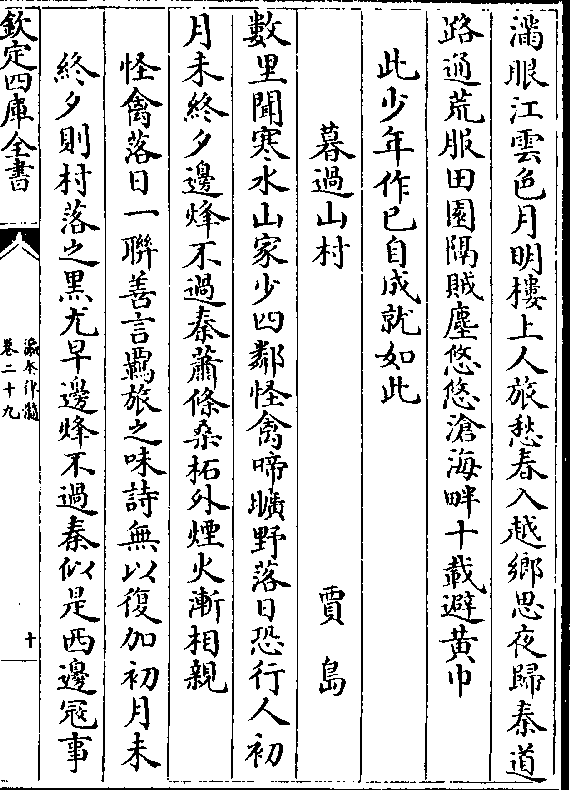 滿眼江雲色月明樓上人旅愁春入越鄉思夜歸秦道
路通荒服田園隔賊塵悠悠滄海畔十載避黃巾
此少年作已自成就如此
暮過山村　賈島
數里聞寒水山家少四鄰怪禽啼曠野落日恐行人初
月未終夕邊烽不過秦蕭條桑柘外煙火漸相親
怪禽落日一聯善言羈旅之味詩無以復加初月未
終夕則村落之黑尤早邊烽不過秦似是西邊冦事
欽定四庫全書
瀛奎律髓
卷二十九
十